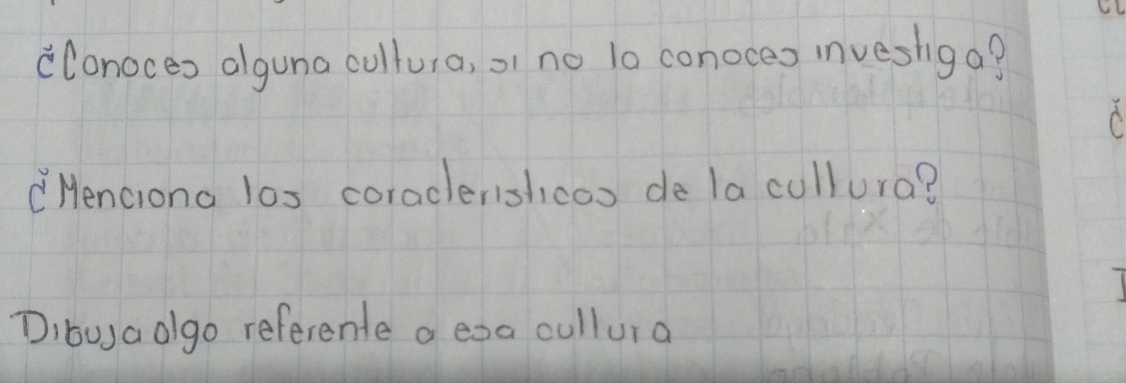 ¿Conoces alguna cultura, si no la conoces investiga?
¿Menciona las caracteristicas de la cultura?
Dibuja algo referente a esa cultura